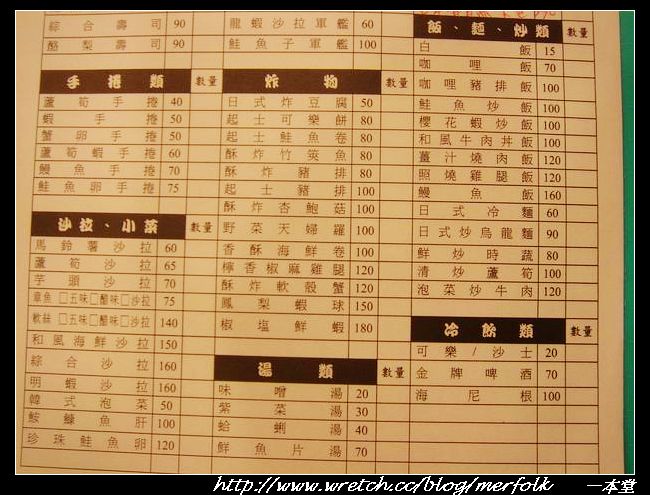 綜合壽司 90
酪梨壽司 90
手捲類 數量
蘆筍手捲 40
蝦手捲 50
蟹卵手捲 50
蘆筍蝦手捲 60
鰻魚手捲 70
鮭魚卵手捲 75
沙拉、小菜 數量
馬鈴薯沙拉 60
蘆筍沙拉 65
芋頭沙拉 70
章魚 □五味□醋味□沙拉 75
軟絲 □五味□醋味□沙拉 140
和風海鮮沙拉 150
綜合沙拉 160
明蝦沙拉 160
韓式泡菜 50
鮟鱇魚肝 100
珍珠鮭魚卵 120
龍蝦沙拉軍艦 60
鮭魚子軍艦 100
炸物 數量
日式炸豆腐 50
起士可樂餅 80
起士鮭魚卷 80
酥炸竹莢魚 80
酥炸豬排 80
起士豬排 100
酥炸杏鮑菇 100
野菜天婦羅 100
香酥海鮮卷 100
檸香椒麻雞腿 120
酥炸軟殼蟹 120
鳳梨蝦球 150
椒塩鮮蝦 180
湯類 數量
味噌湯 20
紫菜湯 30
蛤蜊湯 40
鮮魚片湯 70
飯、麵、炒類 數量
白飯 15
咖哩飯 70
咖哩豬排飯 100
鮭魚炒飯 100
櫻花蝦炒飯 100
和風牛肉丼飯 100
薑汁燒肉飯 120
照燒雞腿飯 120
鰻魚飯 160
日式冷麵 60
日式炒烏龍麵 90
鮮炒時蔬 80
清炒蘆筍 100
泡菜炒牛肉 120
冷飲類 數量
可樂/沙士 20
金牌啤酒 70
海尼根 100
http://www.wretch.cc/blog/merfolk 一本堂